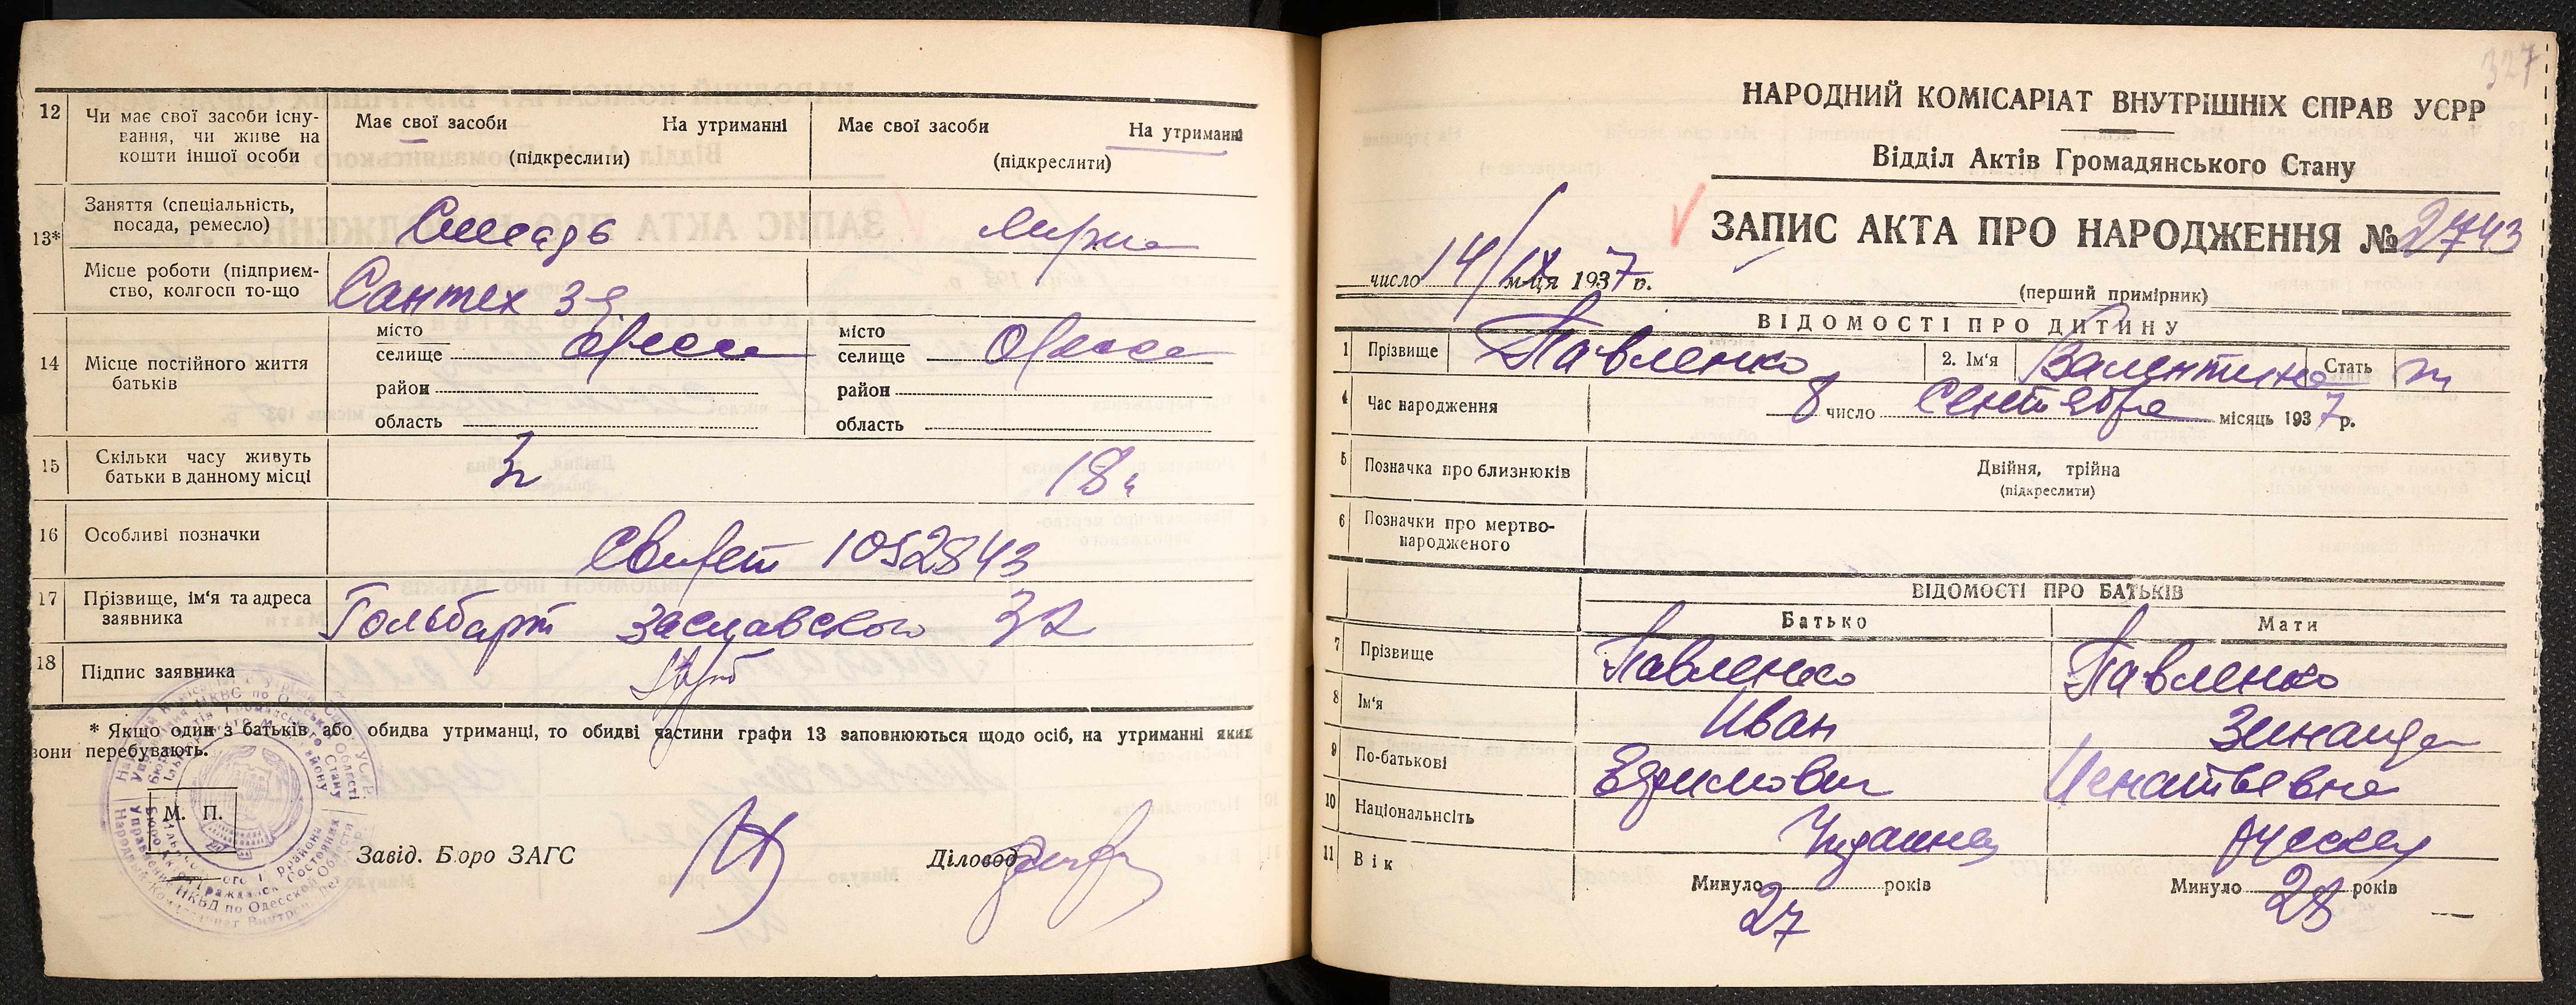 12 Чи має свої засоби існу-
вання, чи живе на
кошти іншої особи
Має свої засоби На утриманні
(підкреслити)
Має свої засоби На утриманні
(підкреслити)
13* Заняття (спеціальність,
посада, ремесло)
Місце роботи (підприєм-
ство, колгосп то-що
Сантех
14 Місце постійного життя
батьків
місто
селище Одесса
район
область
місто
селище Одесса
район
область
15 Скільки часу живуть
батьки в данному місці
18
16 Особливі позначки
Свидет 1052843
17 Прізвище, ім'я та адреса
заявника
Гольбарт Заславского 32
18 Підпис заявника
* Якщо один з батьків або обидва утриманці, то обидві частини графи 13 заповнюються щодо осіб, на утриманні яких
вони перебувають.
М. П.
Завід. Бюро ЗАГС Діловод
327
НАРОДНИЙ КОМІСАРІАТ ВНУТРІШНІХ СПРАВ УСРР
Відділ Актів Громадянського Стану
ЗАПИС АКТА ПРО НАРОДЖЕННЯ № 2743
число 14/IX м-ця 1937 р.
(перший примірник)
ВІДОМОСТІ ПРО ДИТИНУ
1 Прізвище Павленко 2. Ім'я Валентина Стать
4 Час народження 8 число Сентября місяць 1937 р.
5 Позначка про близнюків Двійня, трійна
(підкреслити)
6 Позначки про мертво-
народженого
ВІДОМОСТІ ПРО БАТЬКІВ
Батько Мати
7 Прізвище Павленко Павленко
8 Ім'я Иван Зинаида
9 По-батькові Ефимович Игнатьевна
10 Національність русская
11 Вік Минуло 27 років Минуло 28 років